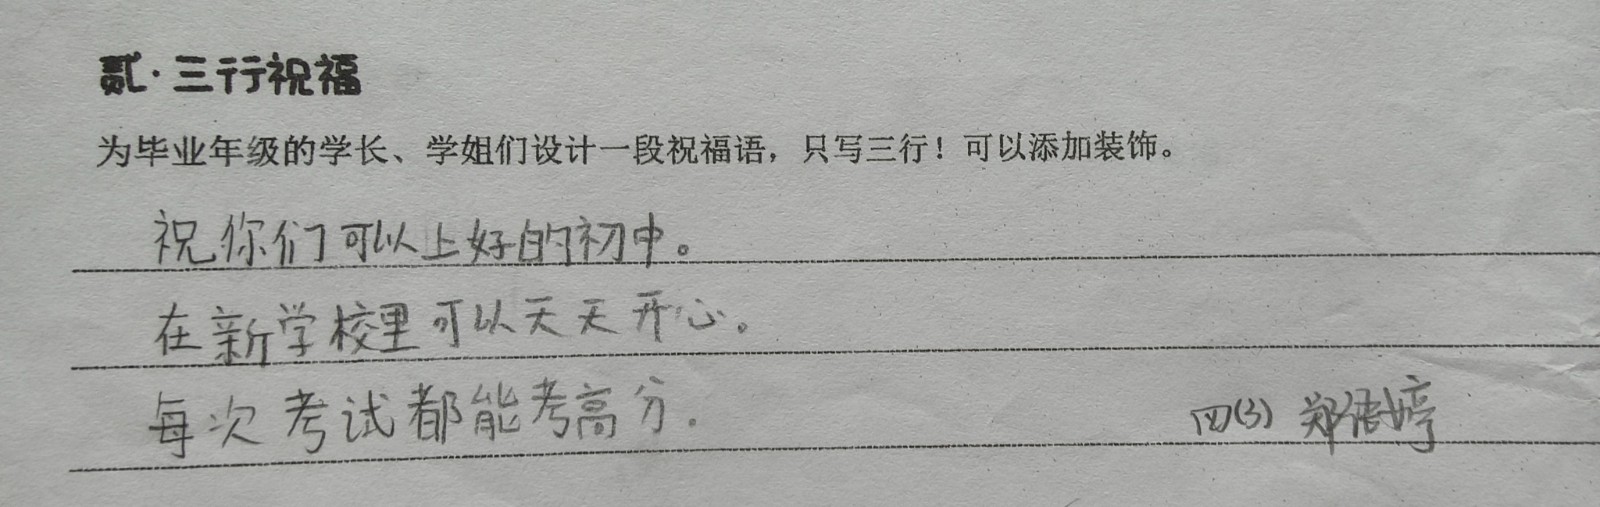 贰·三行祝福
为毕业年级的学长、学姐们设计一段祝福语，只写三行！可以添加装饰。
祝你们可以上好的初中。
在新学校里可以天天开心。
每次考试都能考高分.
四(3) 郑婷